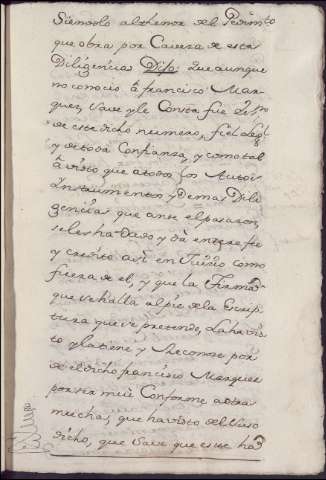 Siendolo al thenor del Pedimto
que obra por Cavesa de estas
Diligencias Dijo: Que aunque
no conocio â francisco Mar-
quez, save y le Consta fue Essno
de este dicho numero, fiel, Legl
y de toda Confianza, y como tal
â visto que a todos los Autos
Ynstrumentos y Demas Dili
gencias que ante el pasaron,
se les ha dado y dâ entera fee
y credito asi en Juicio como
fuera de el, y que la Firma
que se halla al pie de la Escrip
tura que se pretende, La ha vis
to y la tiene y Reconose por
de el dicho francisco Marquez
por ser mui Conforme a otras
muchas, que ha visto del suso
dicho, que save que este ha